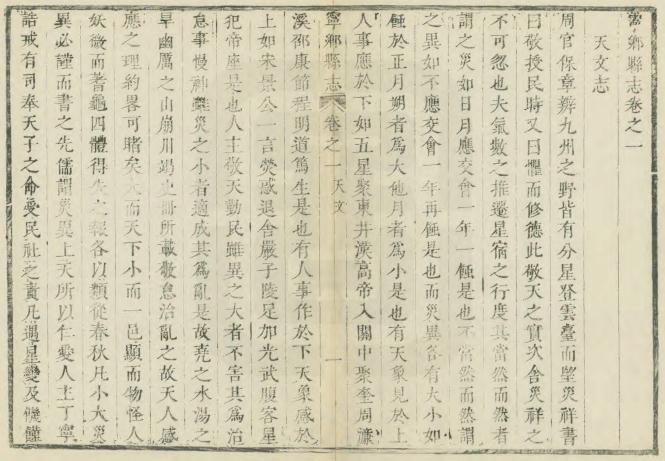 寧鄉縣志卷之一
天文志
周官保章辨九州之野皆有分星登雲臺而望災祥書
曰敬授民時又曰懼而修德此敬天之實次舍災祥之
不可忽也夫氣數之推遷星宿之行度其當然而然者
謂之災如日月應交會一年一蝕是也不當然而然謂
之異如不應交會一年再蝕是也而災異各有大小如
蝕於正月朔者為大他月者為小是也有天象見於上
人事應於下如五星聚東井漢高帝入關中聚奎周濂
寧鄉縣志 卷之一 天文 一
溪邵康節程明道篤生是也有人事作於下天象感於
上如宋景公一言熒惑退舍嚴子陵足加光武腹客星
犯帝座是也人主敬天勤民雖異之大者不害其為治
怠事慢神雖災之小者適成其為亂是故堯之水湯之
旱幽厲之山崩川竭史冊所載敬怠治亂之故天人感
應之理約畧可睹矣大而天下小而一邑顯而物怪人
妖微而著龜四體得失之報各以類從春秋凡小大災
異必謹而書之先儒謂災異上天所以仁愛人主丁寧
誥戒有司奉天子之命受民社之責凡遇星變及饑饉